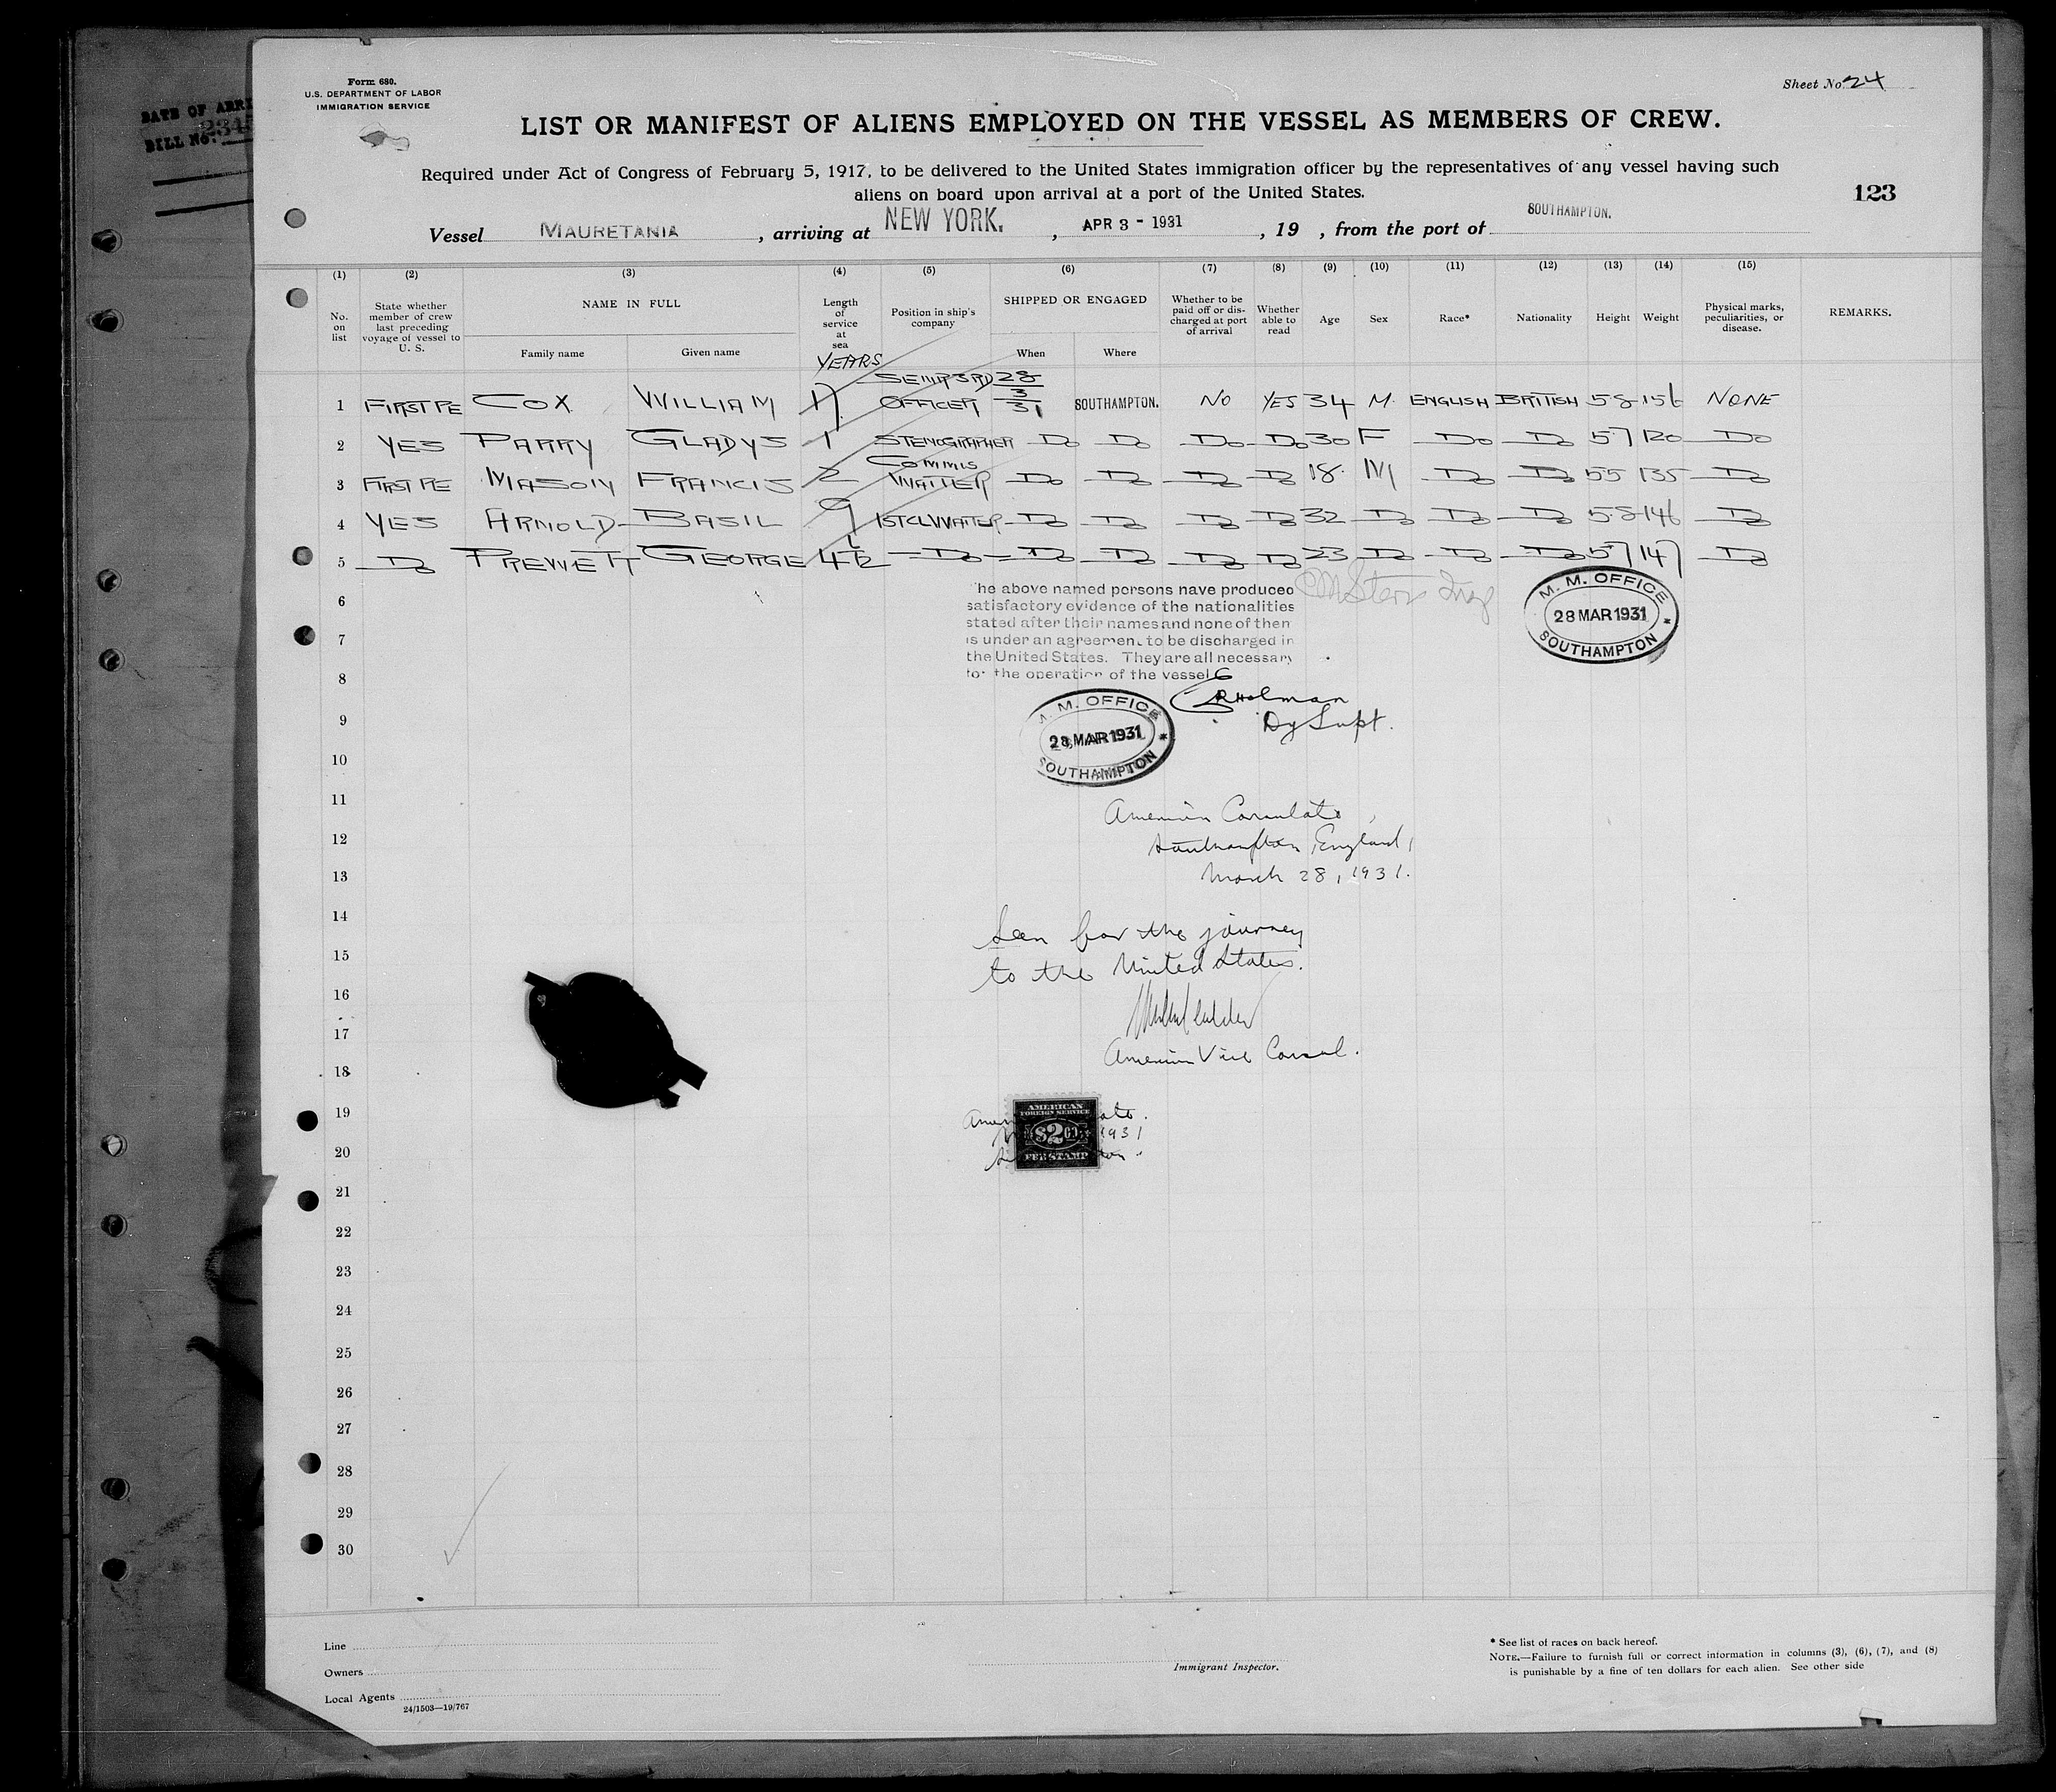 DATE OF ARRI
BILL No. 234
Form 680.
U.S. DEPARTMENT OF LABOR
IMMIGRATION SERVICE
Sheet No. 24
LIST OR MANIFEST OF ALIENS EMPLOYED ON THE VESSEL AS MEMBERS OF CREW.
Required under Act of Congress of February 5, 1917, to be delivered to the United States immigration officer by the representatives of any vessel having such
aliens on board upon arrival at a port of the United States.
123
Vessel MAURETANIA, arriving at NEW YORK., APR 3 - 1931, 19 , from the port of SOUTHAMPTON.
(1) (2) (3) (4) (5) (6) (7) (8) (9) (10) (11) (12) (13) (14) (15)
No. on list
State whether member of crew last preceding voyage of vessel to U. S.
NAME IN FULL
Family name
Given name
Length of service at sea
YEARS
Position in ship's company
SHIPPED OR ENGAGED
When
Where
Whether to be paid off or discharged at port of arrival
Whether able to read
Age
Sex
Race*
Nationality
Height
Weight
Physical marks, peculiarities, or disease.
REMARKS.
1 COX WILLIAM 17 3RD OFFICER 28/3/31 SOUTHAMPTON. NO YES 34 M. ENGLISH BRITISH 5-8 156 NONE
2 YES PARRY GLADYS 1 STENOGRAPHER Do Do Do Do 30 F Do Do 5 7 120 Do
3 MASON FRANCIS 2 COMMIS WAITER Do Do Do Do 18 M Do Do 5 5 135 Do
4 YES ARNOLD BASIL 9 1ST CL WAITER Do Do Do Do 32 Do Do Do 5-8 146 Do
5 Do PREWETT GEORGE 4½ Do Do Do Do Do 23 Do Do Do 5 7 147 Do
The above named persons have produced
satisfactory evidence of the nationalities
stated after their names and none of them
is under an agreement to be discharged in
the United States. They are all necessary
for the operation of the vessel
M. M. OFFICE
28 MAR 1931
SOUTHAMPTON
Holman
Dy Supt.
M. M. OFFICE
28 MAR 1931
SOUTHAMPTON
American Consulate,
Southampton, England,
March 28, 1931.
Seen for the journey
to the United States.
American Vice Consul.
AMERICAN
FOREIGN SERVICE
$2.00
FEE STAMP
1931
6
7
8
9
10
11
12
13
14
15
16
17
18
19
20
21
22
23
24
25
26
27
28
29
30
Line
Owners
Local Agents
24/1503—19/767
Immigrant Inspector.
* See list of races on back hereof.
NOTE.—Failure to furnish full or correct information in columns (3), (6), (7), and (8)
is punishable by a fine of ten dollars for each alien. See other side